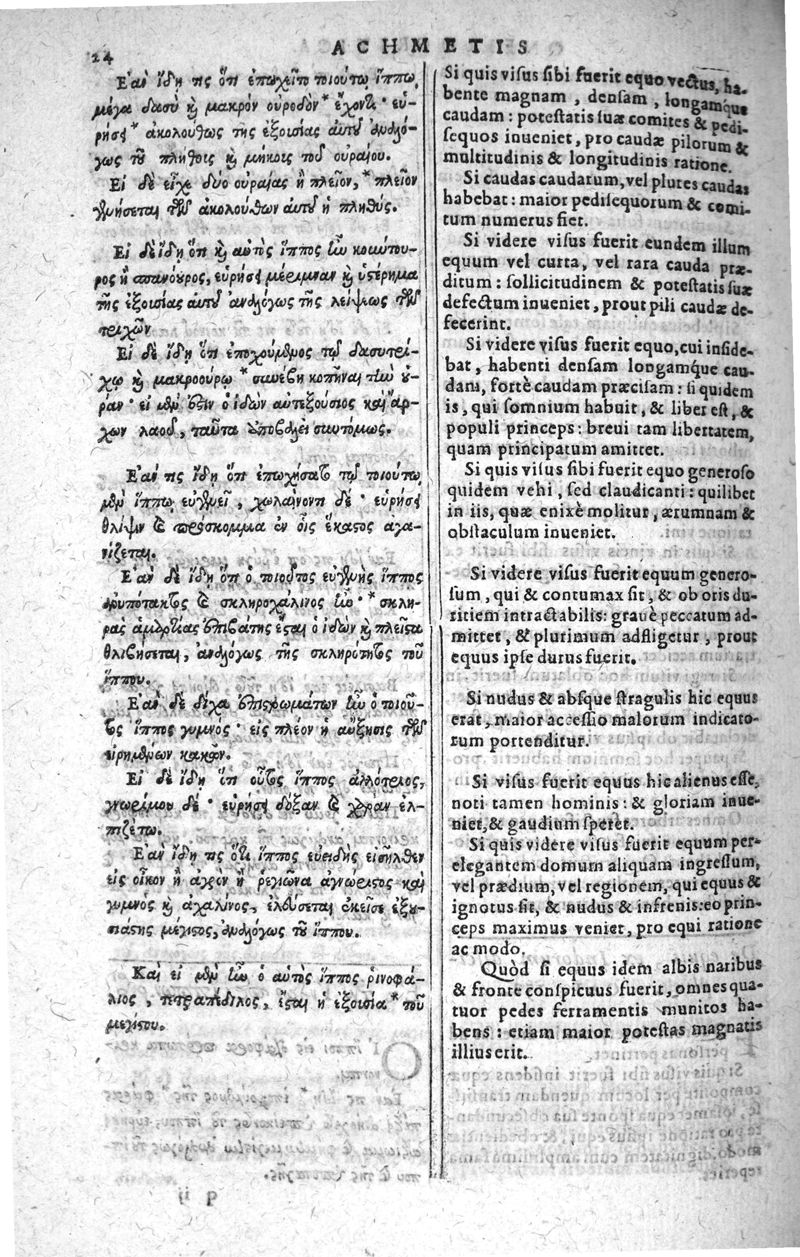 24
ACHMETIS
Ἐὰν ἴδῃ τις ὅτι ἐπωχεῖτο τοιούτῳ ἵππῳ,
μέγα δασὺ καὶ μακρὸν οὐροδὸν* ἔχοντι· εὑ-
ρήσει* ἀκολούθως τῆς ἐξουσίας αὐτοῦ ἀναλό-
γως τοῦ πλήθους καὶ μήκους τοῦ οὐραίου.
Εἰ δὲ εἶχε δύο οὐραίας ἢ πλεῖον,* πλεῖον
γενήσεται τῶν ἀκολούθων αὐτοῦ ἡ πληθύς.
Εἰ δὲ ἴδῃ ὅτι καὶ αὐτὸς ἵππος ἦν κοιντου-
ρος ἢ σπανόυρος, εὑρήσει μέριμναν καὶ ὑστέρημα
τῆς ἐξουσίας αὐτοῦ ἀναλόγως τῆς λείψεως τῶν
τριχῶν.
Εἰ δὲ ἴδῃ ὅτι ἐποχούμενος τῷ δασυτρί-
χῳ καὶ μακροούρῳ* συνέβη κοπῆναι τὴν οὐ-
ράν· εἰ μέν ἐστιν ὁ ἰδὼν αὐτεξούσιος καὶ ἄρ-
χων λαοῦ, ταῦτα ἀποβάλει συντόμως.
Ἐὰν τις ἴδῃ ὅτι ἐπωχήσατο τῷ τοιούτῳ
μὲν ἵππῳ εὐγενεῖ, χωλαίνοντι δέ· εὑρήσει
θλίψιν καὶ πρόσκομμα ἐν οἷς ἕκαστος ἀγω-
νίζεται.
Ἐὰν δὲ ἴδῃ ὅτι ὁ τοιοῦτος εὐγενὴς ἵππος
ἀνυπότακτος καὶ σκληροχάλινος ἦν·* σκλη-
ρᾶς ἁμαρτίας ἐπιβάτης ἔσται ὁ ἰδὼν καὶ πλεῖστα
θλιβήσεται, ἀναλόγως τῆς σκληρότητος τοῦ
ἵππου.
Ἐὰν δὲ δίχα ἐπιστρωμάτων ἦν ὁ τοιοῦ-
τος ἵππος γυμνός· εἰς πλέον ἡ αὔξησις τῶν
εἰρημένων κακῶν.
Εἰ δὲ ἴδῃ ὅτι οὗτος ἵππος ἀλλότριος,
γνωρίμου δέ· εὑρήσει δόξαν καὶ χαρὰν ἐλ-
πιζέτω.
Ἐὰν ἴδῃ τις ὅτι ἵππος εὐειδὴς εἰσῆλθεν
εἰς οἶκον ἢ ἀγρὸν ἢ ῥεγιῶνα ἀγνώριστος καὶ
γυμνὸς καὶ ἀχάλινος, ἐλεύσεται ἐκεῖσε ἐξου-
σιαστὴς μέγιστος, ἀναλόγως τοῦ ἵππου.
Καὶ εἰ μὲν ἦν ὁ αὐτὸς ἵππος ῥινοφά-
λιος, τετραπέδιλος, ἔσται ἡ ἐξουσία* τοῦ
μεγίστου.
Si quis visus sibi fuerit equo vectus, ha-
bente magnam, densam, longamque
caudam: potestatis suæ comites & pedi-
sequos inueniet, pro caudæ pilorum &
multitudinis & longitudinis ratione.
Si caudas caudatum, vel plures caudas
habebat: maior pedisequorum & comi-
tum numerus fiet.
Si videre visus fuerit eundem illum
equum vel curta, vel rara cauda præ-
ditum: sollicitudinem & potestatis suæ
defectum inueniet, prout pili caudæ de-
fecerint.
Si videre visus fuerit equo, cui inside-
bat, habenti densam longamque cau-
dam, fortè caudam præcisam: si quidem
is, qui somnium habuit, & liber est, &
populi princeps: breui tam libertatem,
quam principatum amittet.
Si quis visus sibi fuerit equo generoso
quidem vehi, sed claudicanti: quilibet
in iis, quæ enixè molitur, ærumnam &
obstaculum inueniet.
Si videre visus fuerit equum genero-
sum, qui & contumax sit, & ob oris du-
ritiem intractabilis: graue peccatum ad-
mittet, & plurimum adfligetur, prout
equus ipse durus fuerit.
Si nudus & absque stragulis hic equus
erat, maior accessio malorum indicato-
rum portenditur.
Si visus fuerit equus hic alienus esse,
noti tamen hominis: & gloriam inue-
niet, & gaudium speret.
Si quis videre visus fuerit equum per-
elegantem domum aliquam ingressum,
vel prædium, vel regionem, qui equus &
ignotus sit, & nudus & infrenis: eo prin-
ceps maximus veniet, pro equi ratione
ac modo.
Quòd si equus idem albis naribus
& fronte conspicuus fuerit, omnes qua-
tuor pedes ferramentis munitos ha-
bens: etiam maior potestas magnatis
illius erit.